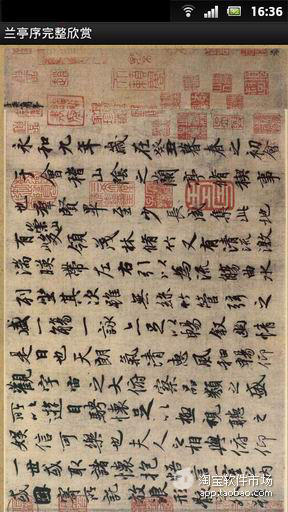 16:36
兰亭序完整欣赏
永和九年歲在癸丑暮春之初會
于會稽山陰之蘭亭脩禊事
也羣賢畢至少長咸集此地
有崇山峻領茂林脩竹又有清流激
湍暎帶左右引以為流觴曲水
列坐其次雖無絲竹管弦之
盛一觴一詠亦足以暢敘幽情
是日也天朗氣清惠風和暢仰
觀宇宙之大俯察品類之盛
所以遊目騁懷足以極視聽之
娛信可樂也夫人之相與俯仰
一世或取諸懷抱
或因寄所託放浪形
淘宝软件市场
app.taobao.com